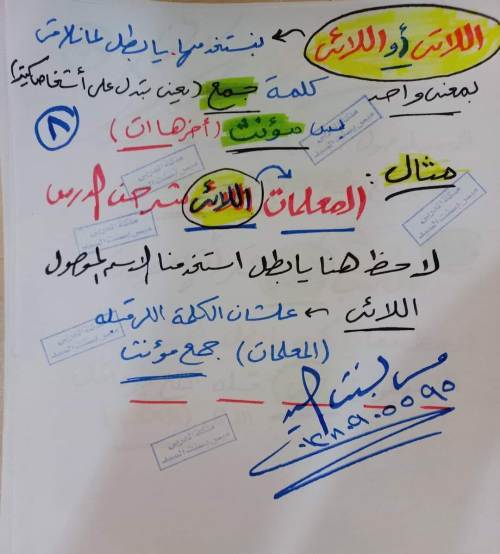 اللاتى أو اللائى ← بنستخدمها يا بطل لما نلاقى
بمعنى واحد كلمة جمع (يعنى بتدل على أشخاص كتير)
بس مؤنث (أخرها ات)
٨
مثال :
المعلمات اللائى شرحن الدرس
لاحظ هنا يا بطل استخدمنا الاسم الموصول
اللائى ← علشان الكلمة اللى قبله
(المعلمات) جمع مؤنث
مس بسنت السيد